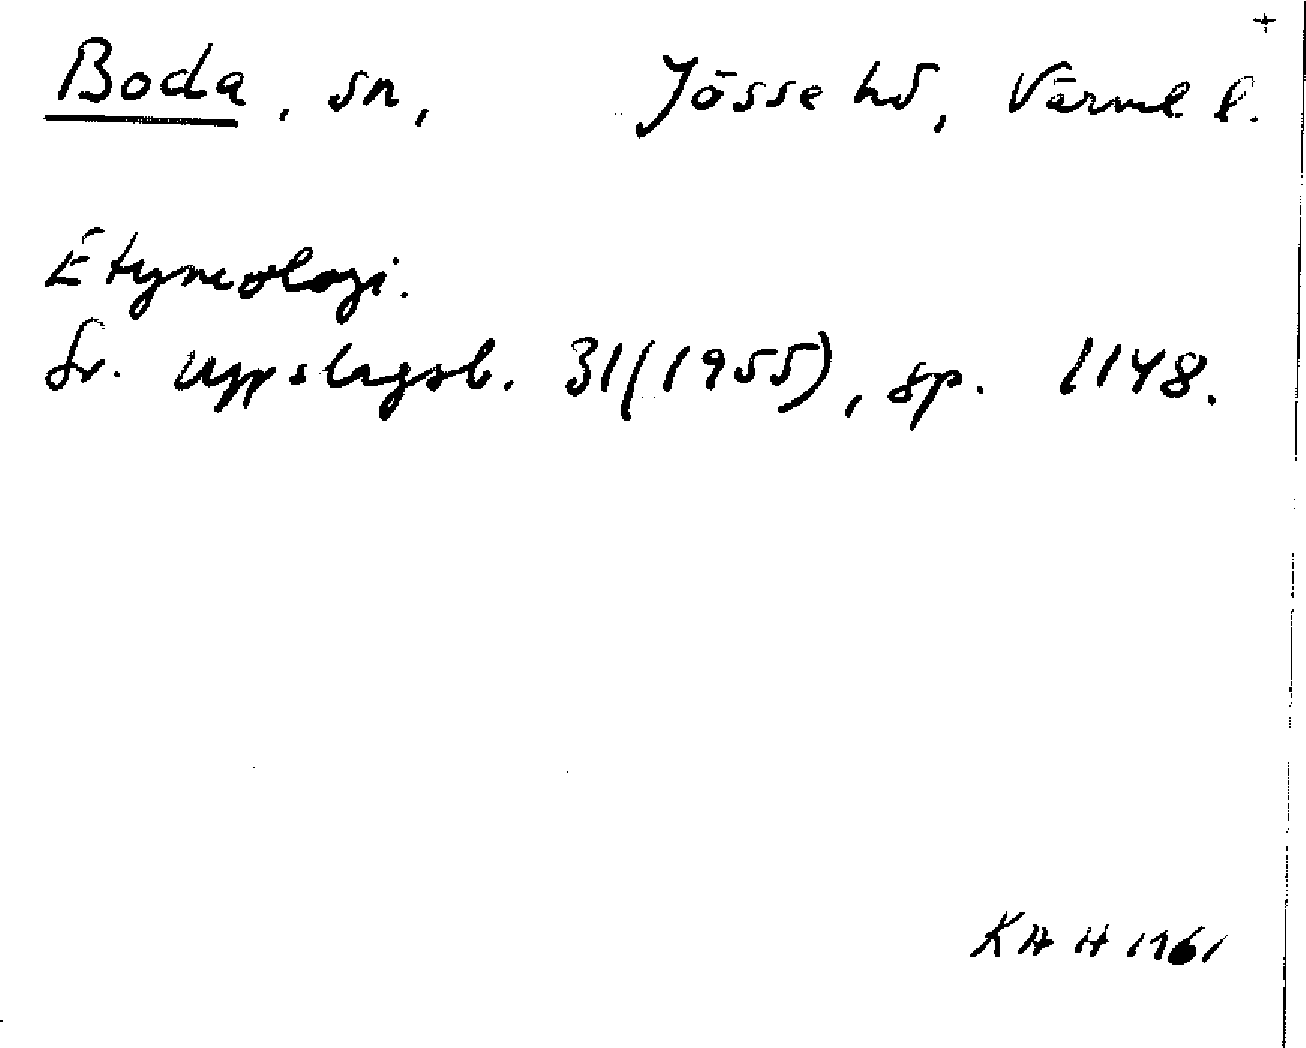 +
Boda, sn, Jösse hd, Värml l.
Etymologi.
Sv. uppslagsb. 31(1955), sp. 1148.
KHH 1961